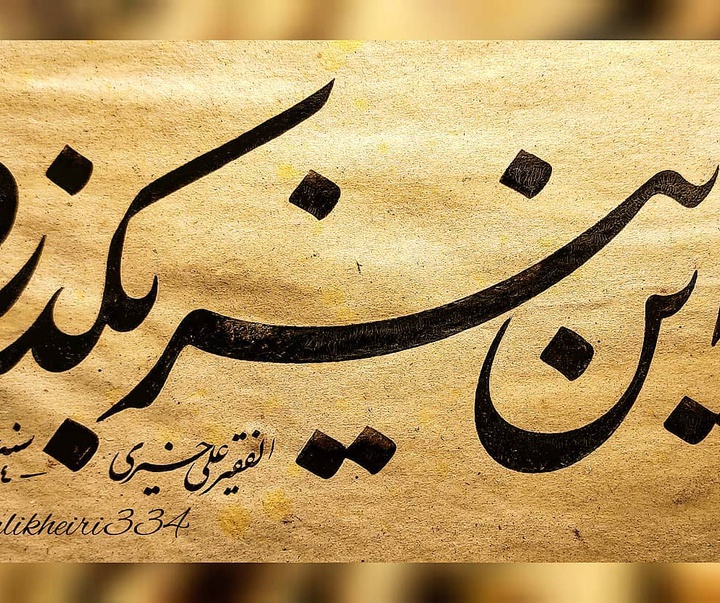 این نیز بگذرد
الفقیر علی خیری
alikheiri334